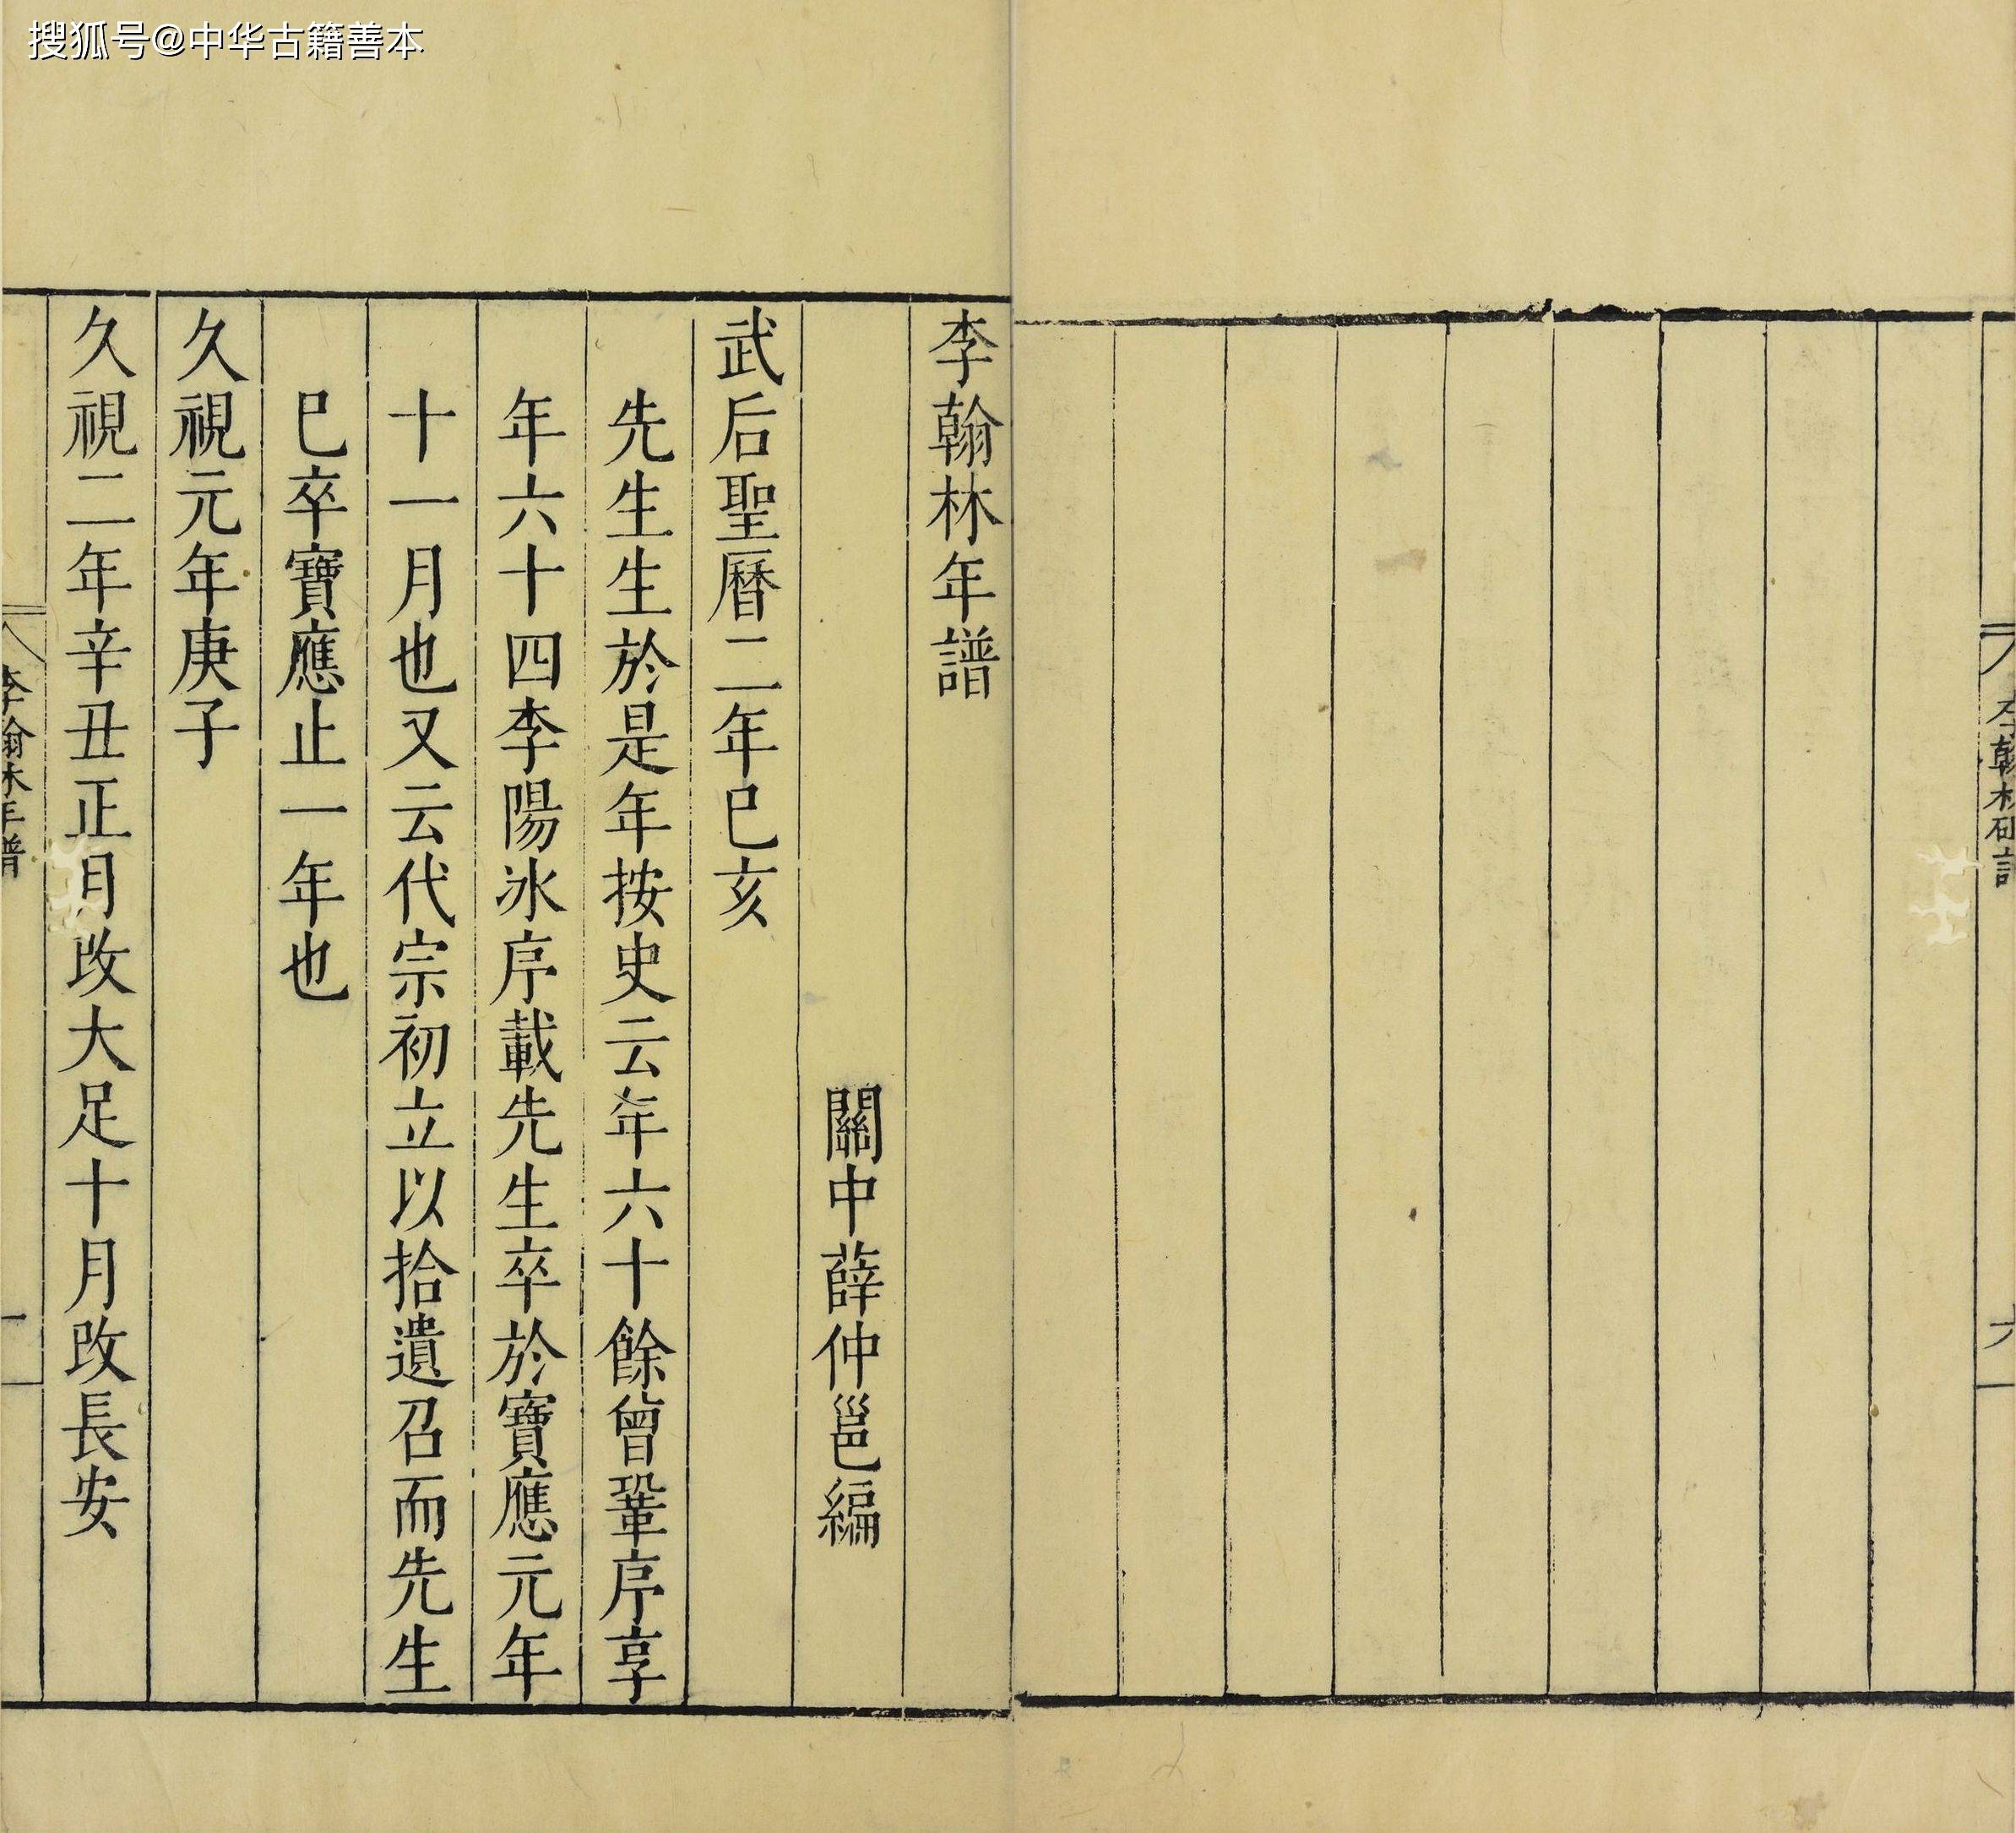 搜狐号@中华古籍善本
李翰林年譜
關中薛仲邕編
武后聖曆二年巳亥
先生生於是年按史云年六十餘曾鞏序享
年六十四李陽冰序載先生卒於寶應元年
十一月也又云代宗初立以拾遺召而先生
巳卒寶應止一年也
久視元年庚子
久視二年辛丑正月改大足十月改長安
李翰林年譜
一